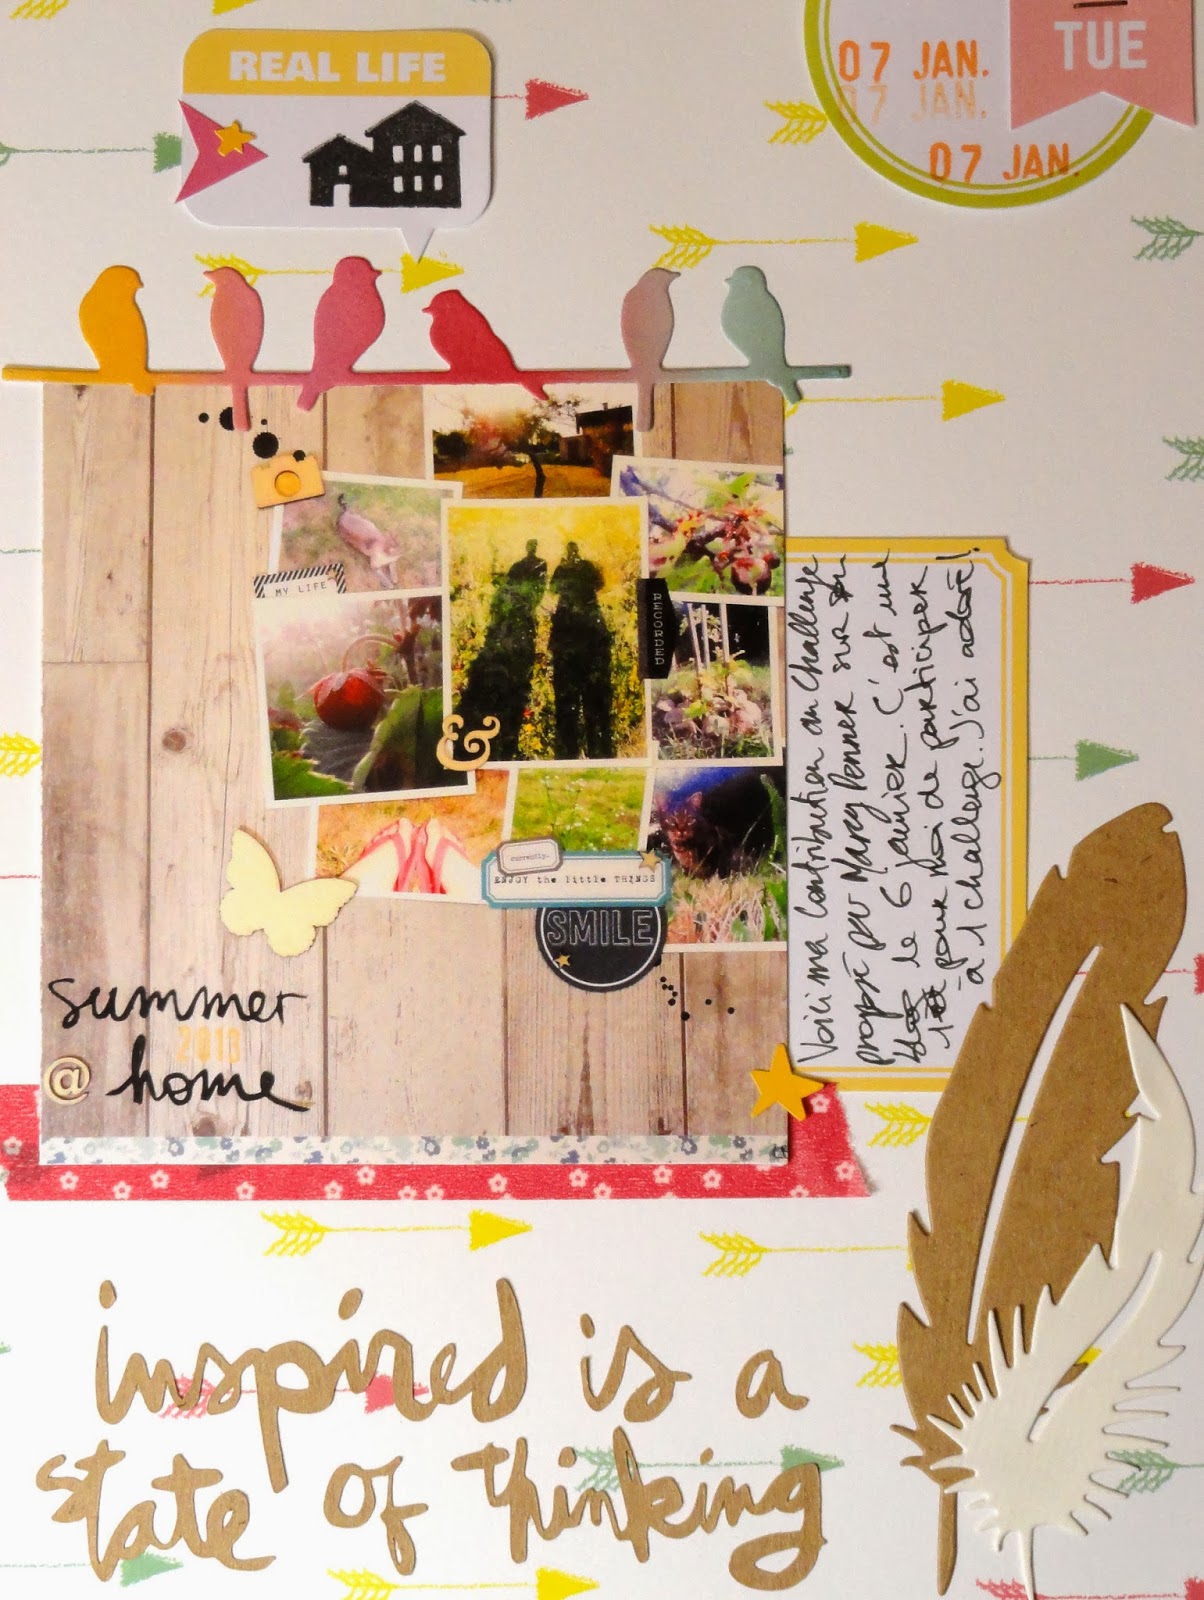 REAL LIFE
TUE
07 JAN.
07 JAN.
07 JAN.
MY LIFE
RECORDED
&
currently.
ENJOY the little THINGS
SMILE
Voici ma contribution au challenge
propsé par Marcy Penner sur son
blog le 6 janvier. C'est une
1ère pour moi de participer
à 1 challenge. J'ai adoré!
summer
2013
@ home
inspired is a
state of thinking